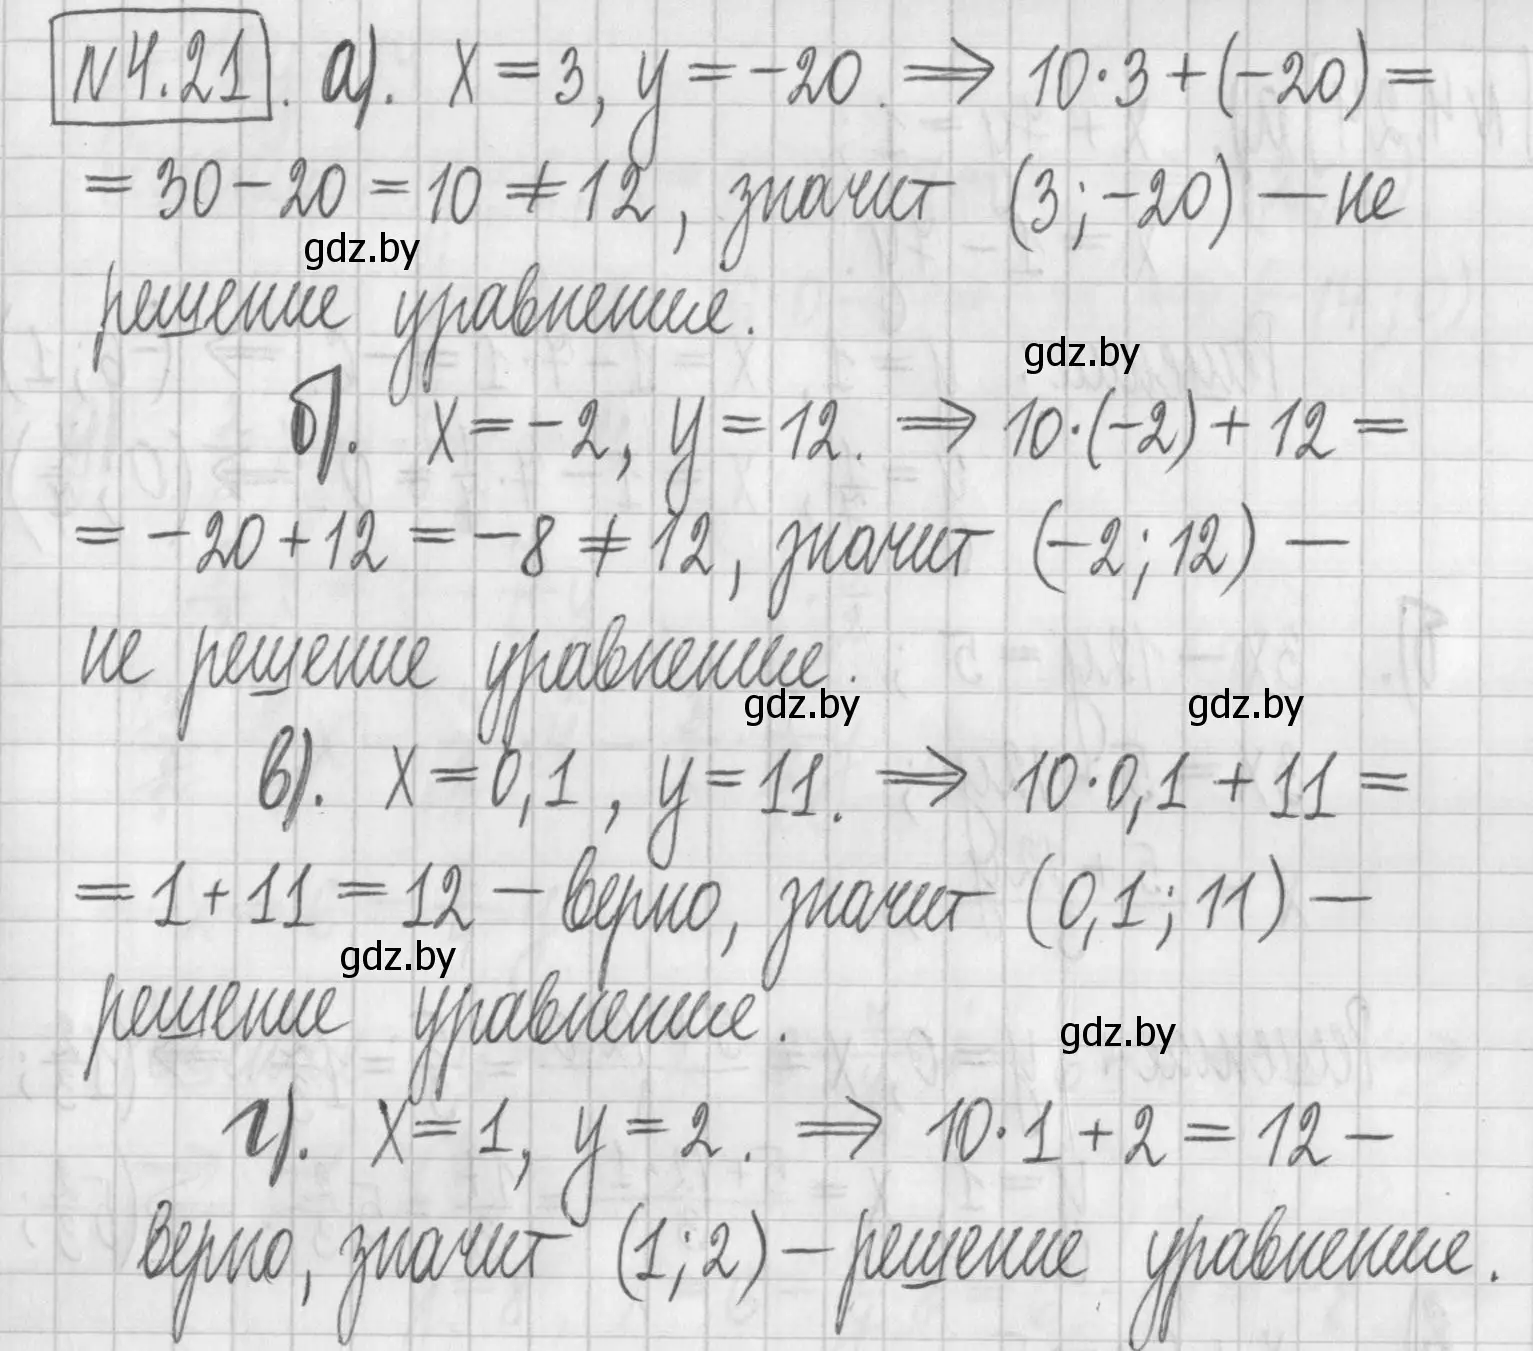 №4.21. а). x = 3, y = -20. ⇒ 10·3 + (-20) =
= 30 - 20 = 10 ≠ 12, значит (3; -20) — не
gdz.by
решение уравнение.
gdz.by
б). x = -2, y = 12. ⇒ 10·(-2) + 12 =
= -20 + 12 = -8 ≠ 12, значит (-2; 12) —
не решение уравнение.
gdz.by gdz.by
в). x = 0,1, y = 11. ⇒ 10·0,1 + 11 =
= 1 + 11 = 12 — верно, значит (0,1; 11) —
gdz.by
решение уравнение.
gdz.by
г). x = 1, y = 2. ⇒ 10·1 + 2 = 12 —
верно, значит (1; 2) — решение уравнение.